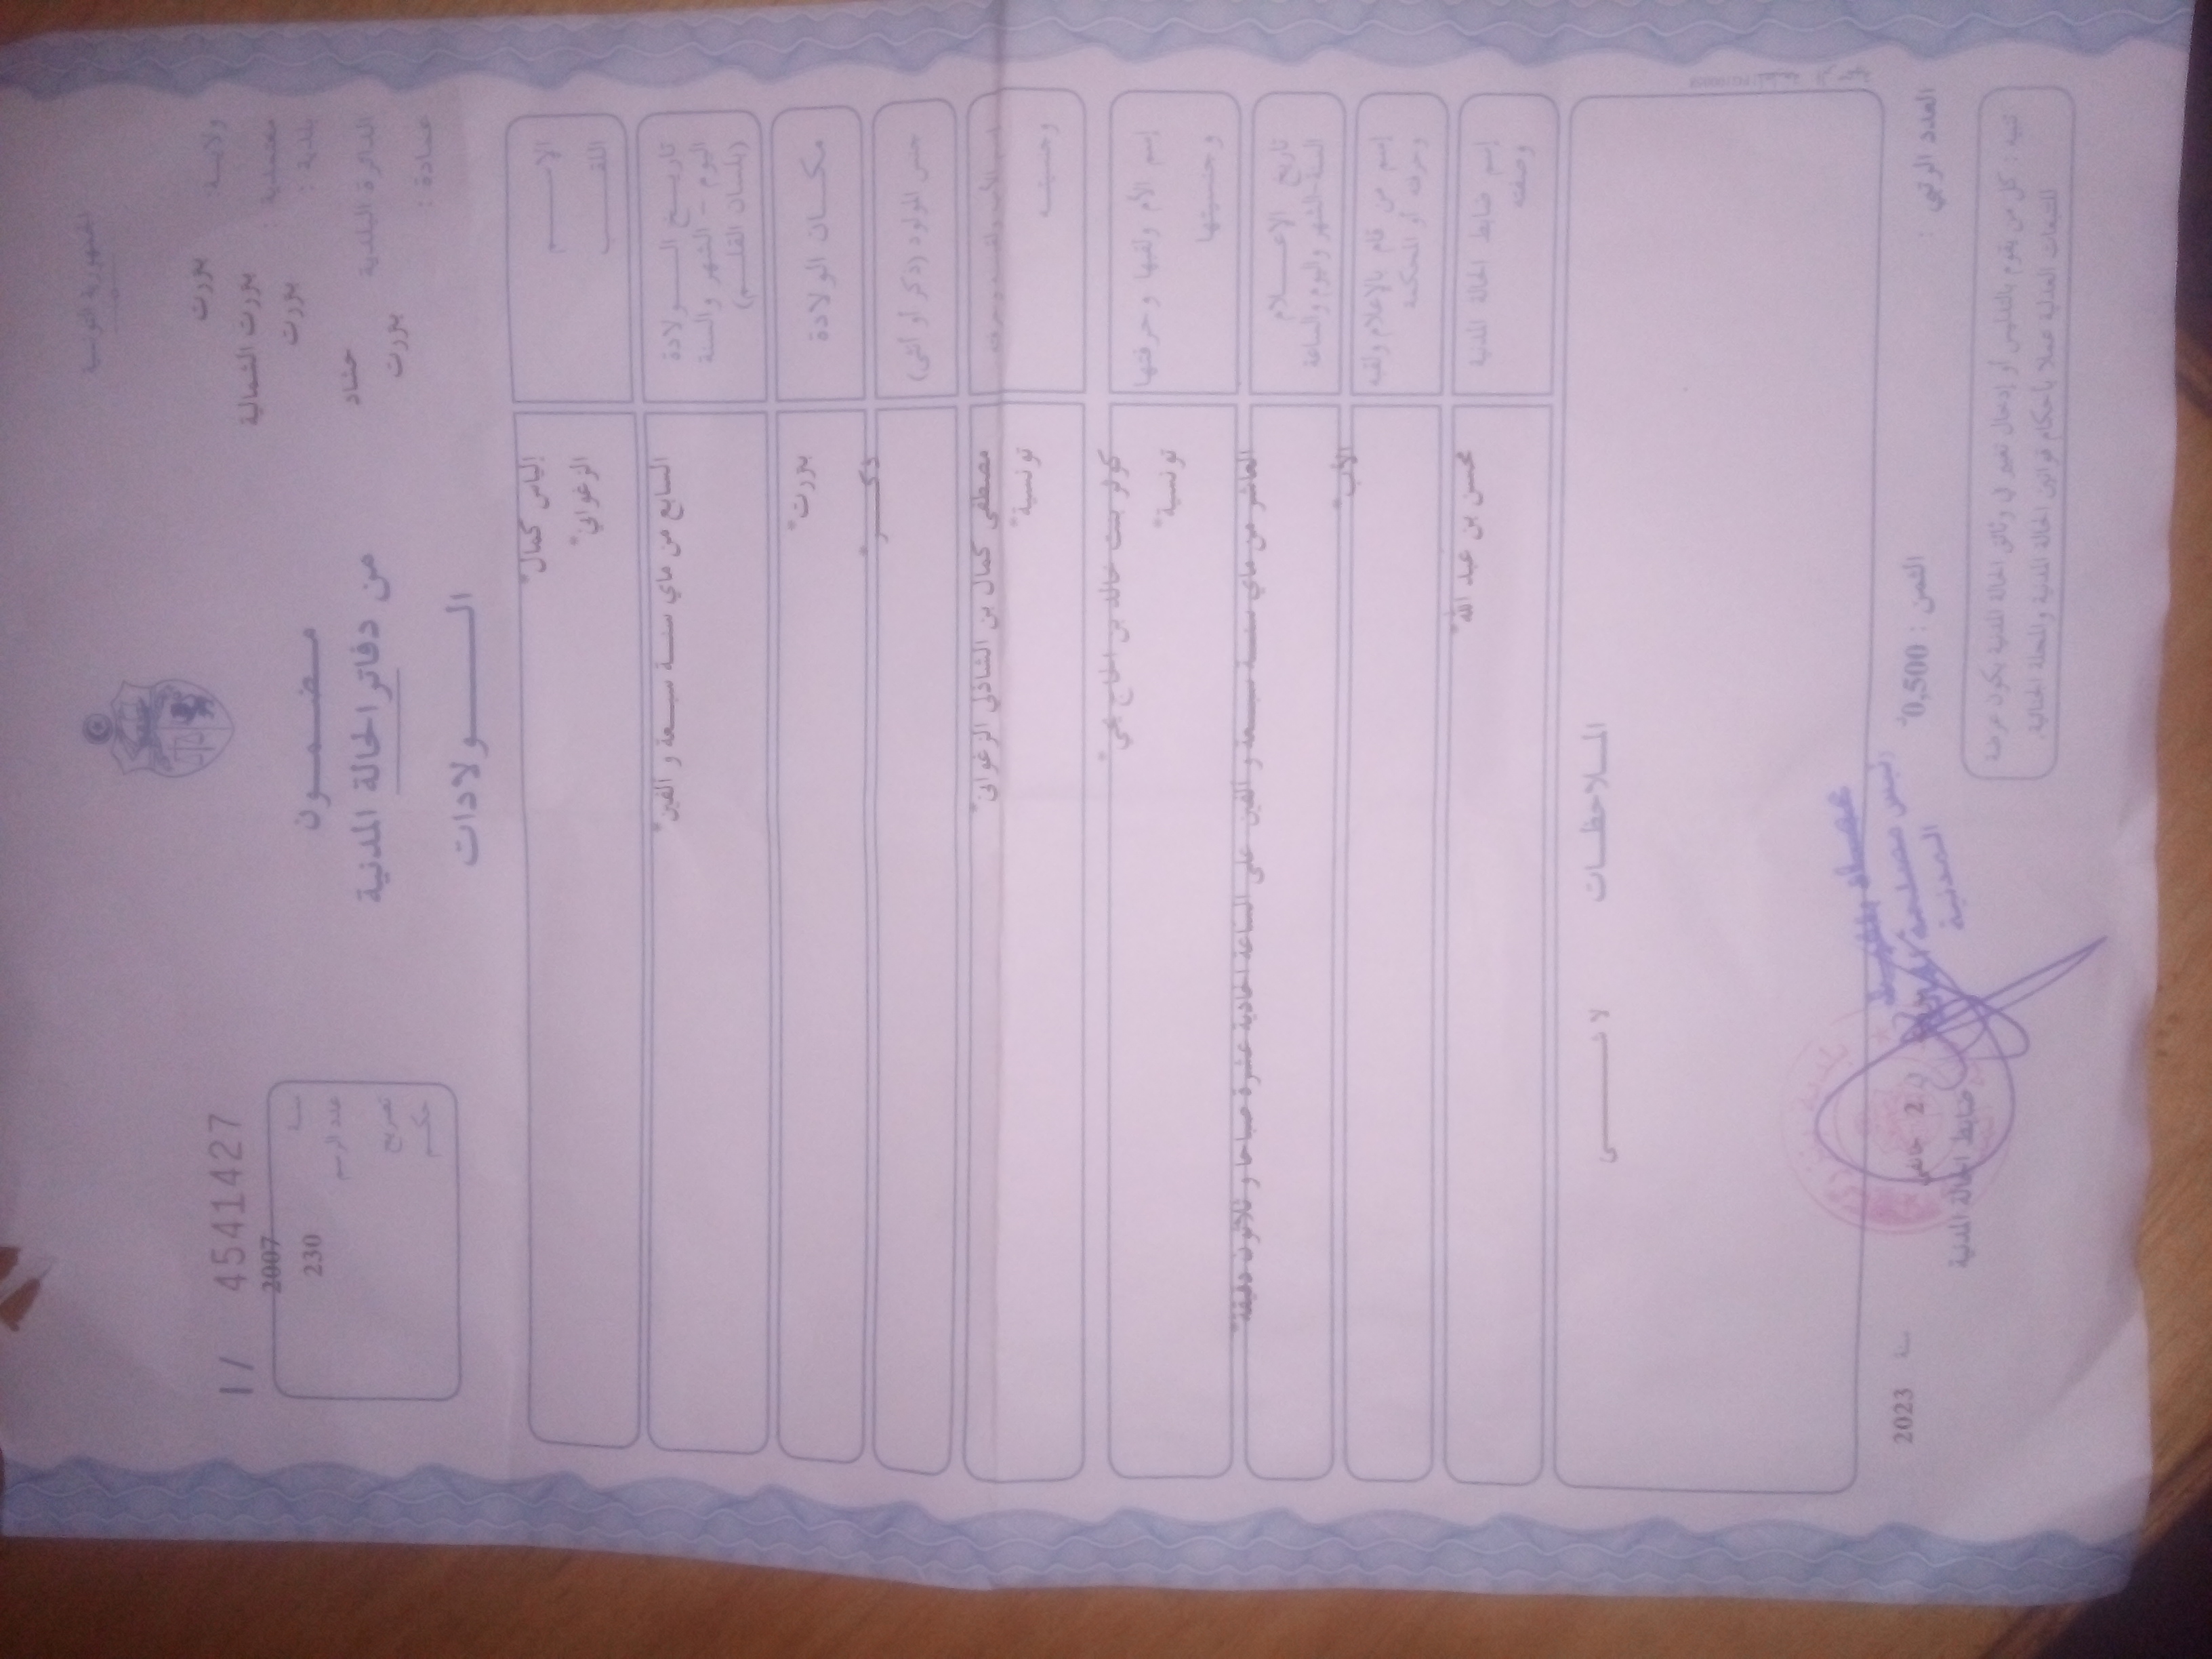 الجمهورية التونسية
ولاية: بنزرت
معتمدية: بنزرت الشمالية
بلدية: بنزرت
الدائرة البلدية حشاد
عمادة: بنزرت
1/ 4541427
سنة 2007
عدد الرسم 230
تصريح
حكم
مضمون
من دفاتر الحالة المدنية
الولادات
الاسم
إلياس كمال*
اللقب
الزغواني*
تاريخ الولادة
اليوم - الشهر والسنة
(بلسان القلم)
السابع من ماي سنة سبعة و ألفين*
مكان الولادة
بنزرت*
جنس المولود (ذكر أو أنثى)
ذكر*
إسم الأب ولقبه وحرفته
وجنسيته
مصطفى كمال بن الشاذلي الزغواني*
تونسية*
إسم الأم ولقبها وحرفتها
وجنسيتها
بنت خالد بن الحاج يحي*
تونسية*
تاريخ الإعلام
السنة والشهر واليوم والساعة
العاشر من ماي سنة سبعة و ألفين على الساعة الحادية عشرة صباحا و ثلاثون دقيقة*
إسم من قام بالإعلام ولقبه
وحرفته أو المحكمة
الأب*
إسم ضابط الحالة المدنية
وصفته
محسن بن عبد الله*
الملاحظات
لا شيء
العدد الرتبي :
الثمن : 0,500
2 جانفي سنة 2023
ضابط الحالة المدنية
رئيس مصلحة الحالة
المدنية
تنبيه : كل من يقوم بالتدليس أو إدخال تغيير في وثائق الحالة المدنية يكون عرضة
للتتبعات العدلية عملا بأحكام قوانين الحالة المدنية والمجلة الجنائية